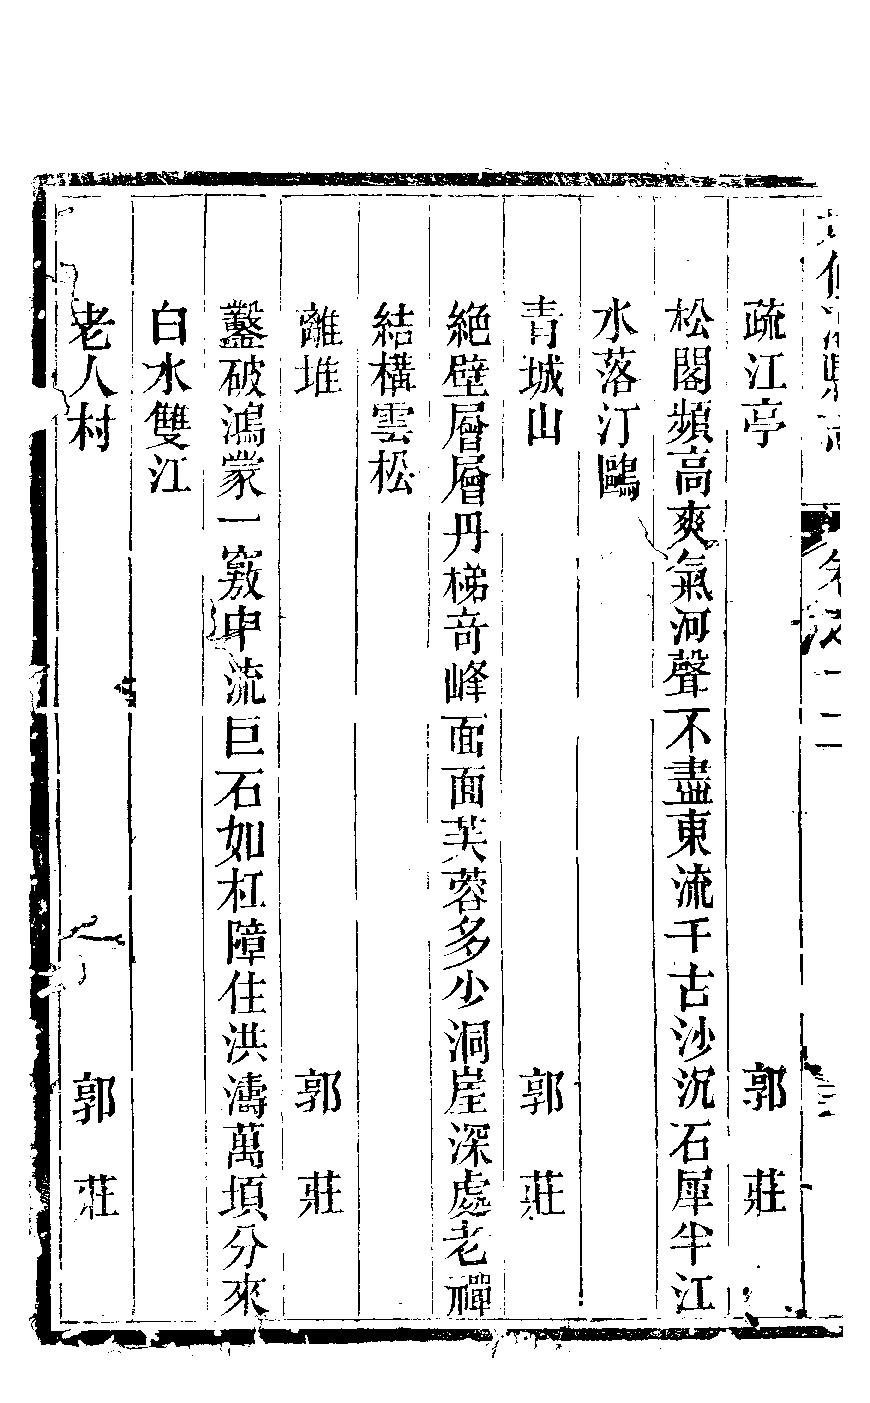 疏江亭 郭莊
松閣頻高爽氣河聲不盡東流千古沙沉石犀半江
水落汀鷗
青城山 郭莊
絕壁層層丹梯奇峰面面芙蓉多少洞崖深處老禪
結構雲松
離堆 郭莊
鑿破鴻蒙一竅中流巨石如杠障住洪濤萬頃分來
白水雙江
老人村 郭莊